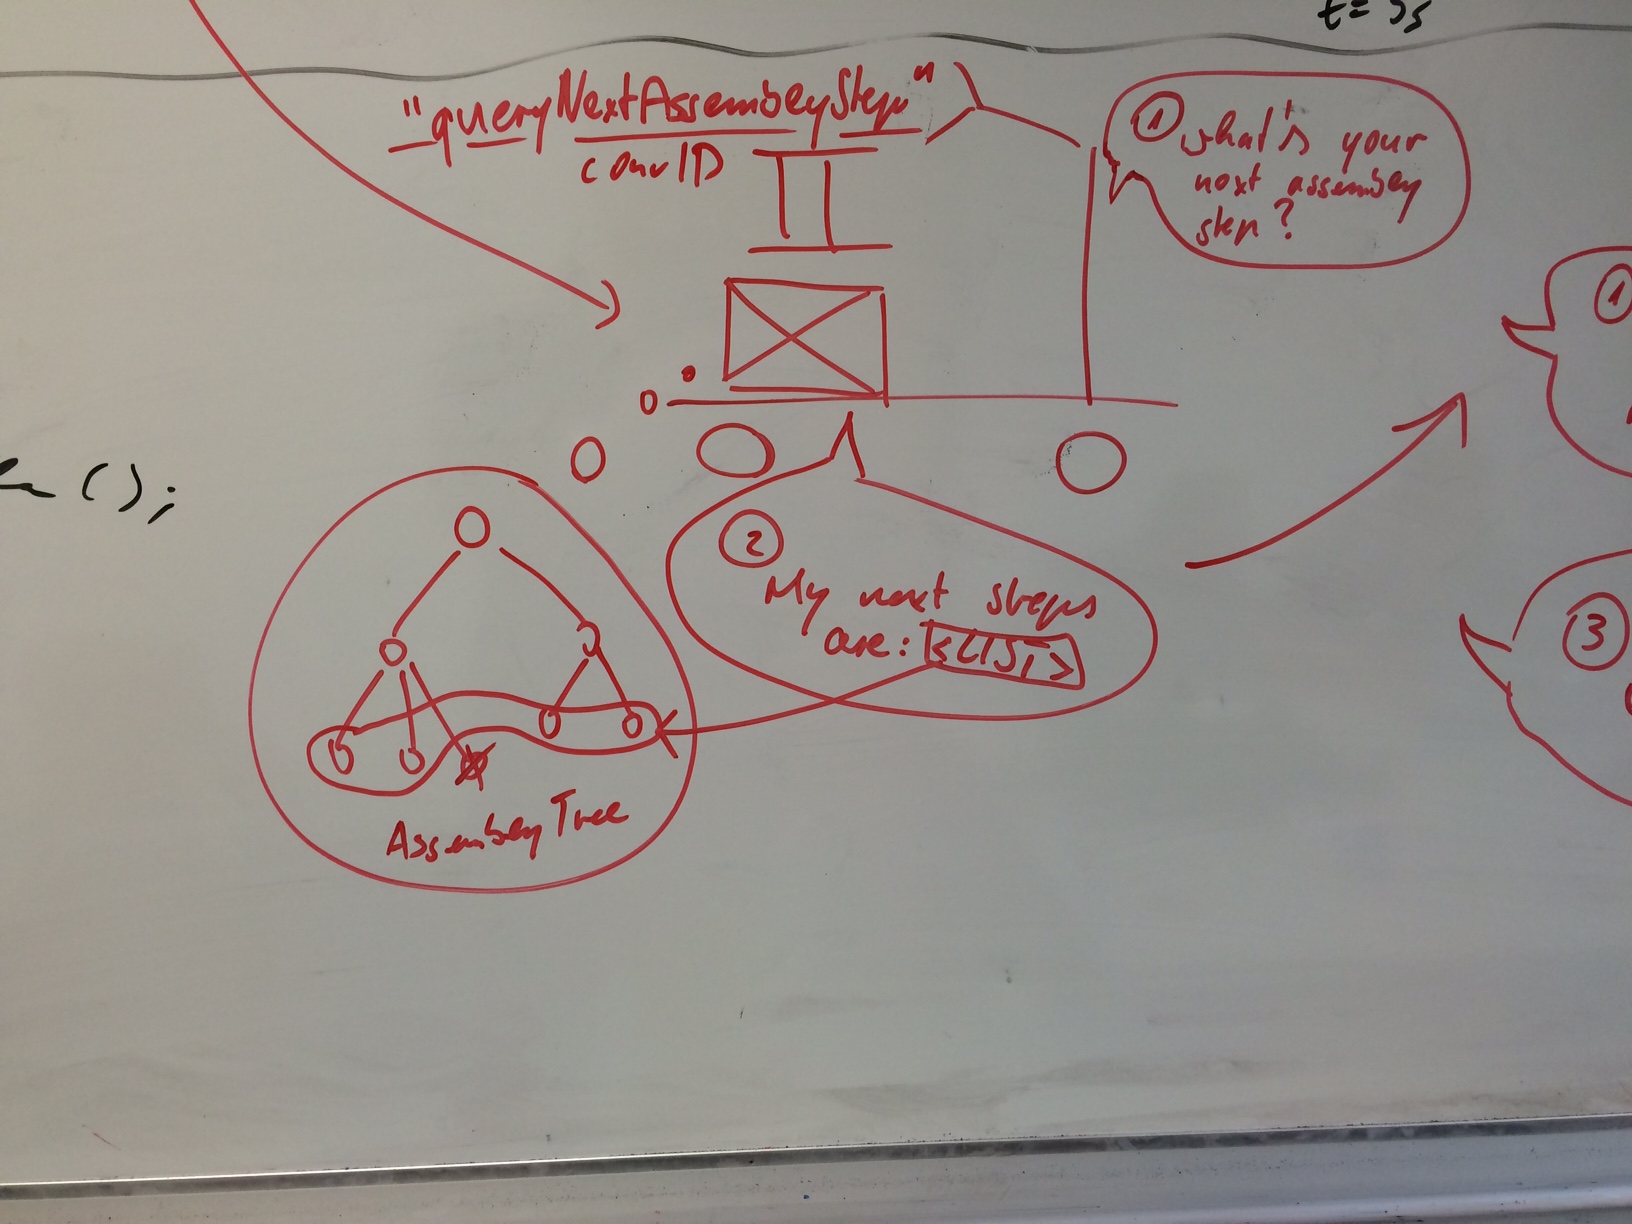 t= 5s
"queryNextAssemblyStep"
convID
1 what's your
next assembly
step?
1
();
2
My next steps
are: <LIST>
3
Assembly Tree